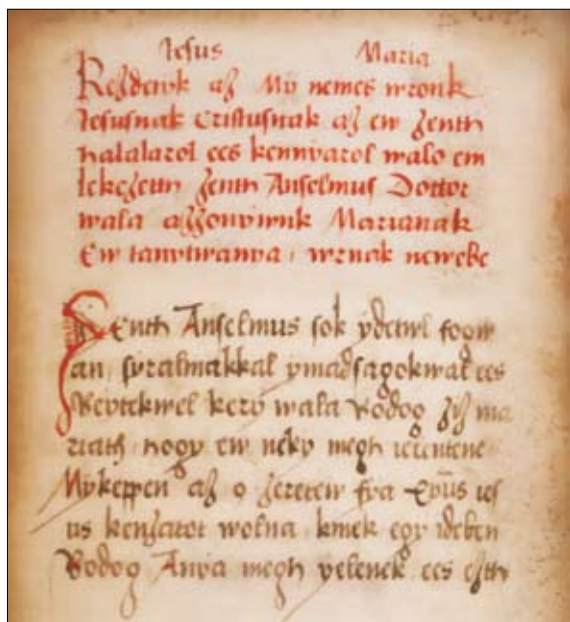 Jesus Maria
Rezdewk az My nemes wronk
Jesusnak Cristusnak az ew zenth
halalarol ees kennyarol walo em
lekezetth zenth Anselmus Dottor
wala azzonywnk Marianak
Ew tanytwanya wrnak neweke
Zenth Anselmus sok ydewl fogw
an syralmakkal ymadsagokwal ees
Beytekwel kery wala Bodog zyz ma
riath hogy ew neky megh ielentene
Mykeppen az o zeretew fya Xpus ies
us kenzatot wolna kinek egy ideben
Bodog Anya megh yelenek ees